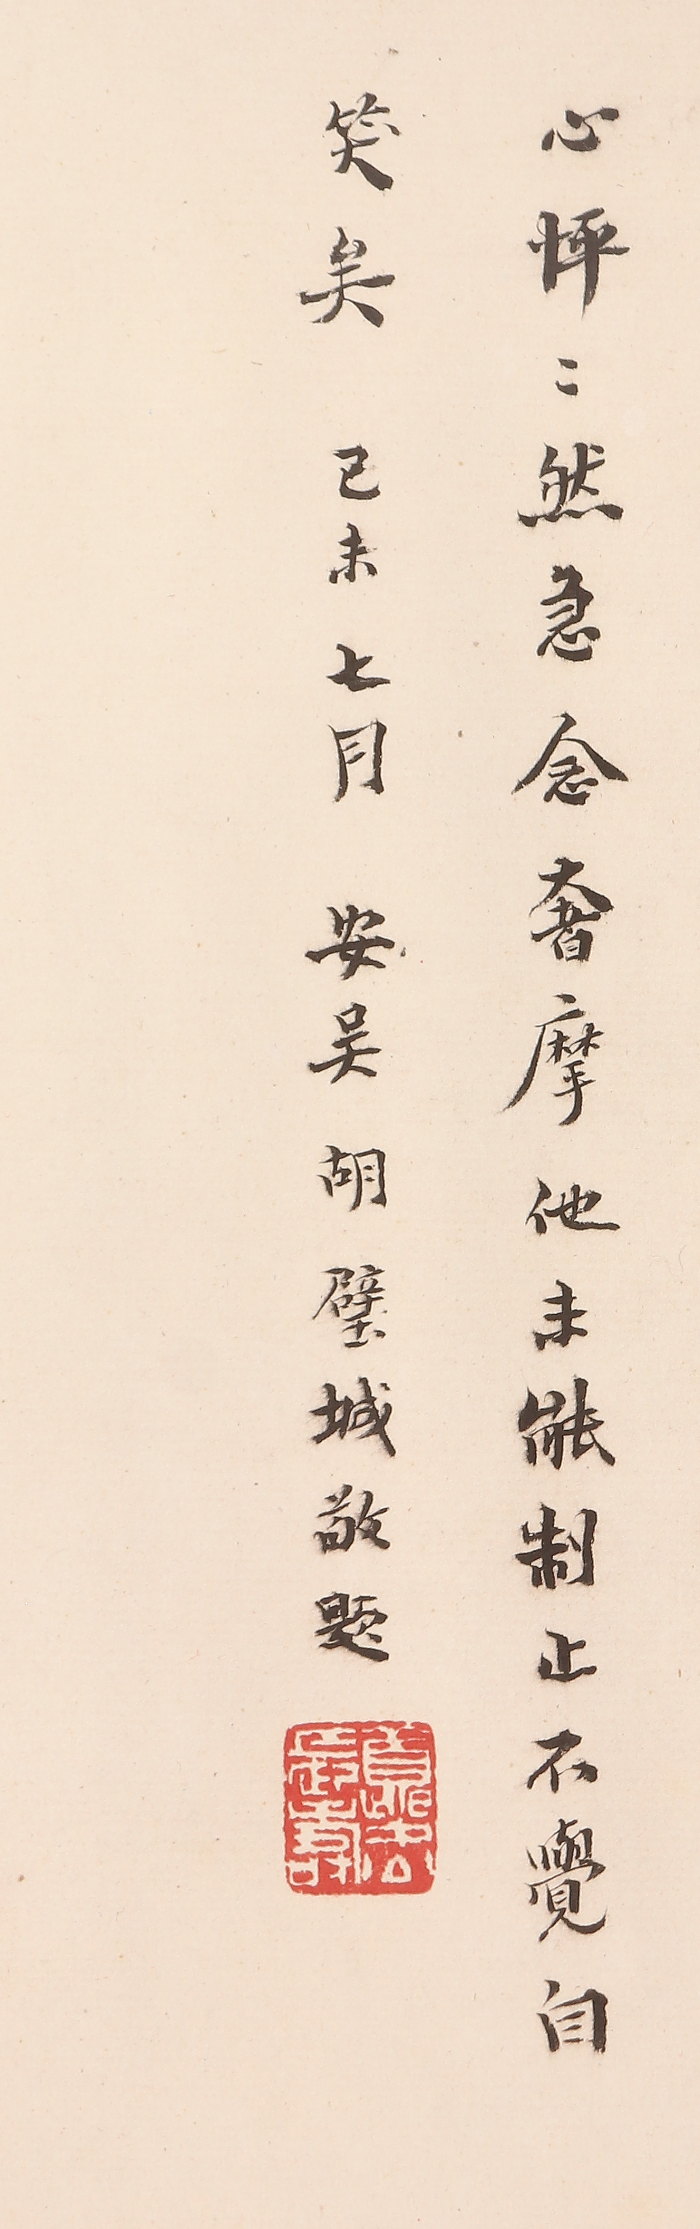 心怦〻然急念奢摩他未能制止不覺自
笑矣 己未七月 安吳胡璧城敬題